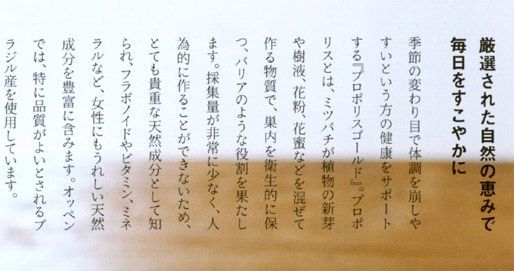 厳選された自然の恵みで
毎日をすこやかに
季節の変わり目で体調を崩しや
すいという方の健康をサポート
する『プロポリスゴールド』。プロポ
リスとは、ミツバチが植物の新芽
や樹液、花粉、花蜜などを混ぜて
作る物質で、巣内を衛生的に保
つ、バリアのような役割を果たし
ます。採集量が非常に少なく、人
為的に作ることができないため、
とても貴重な天然成分として知
られ、フラボノイドやビタミン、ミネ
ラルなど、女性にもうれしい天然
成分を豊富に含みます。オッペン
では、特に品質がよいとされるブ
ラジル産を使用しています。